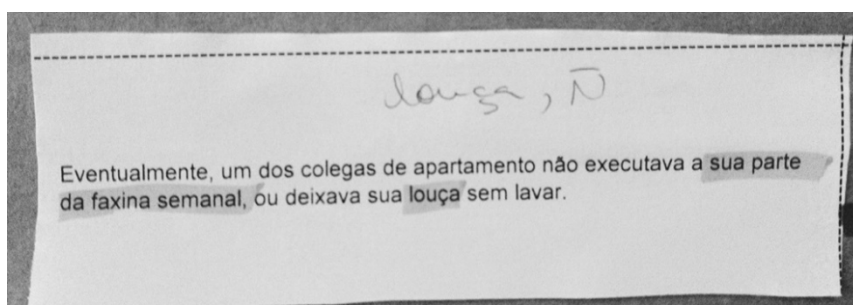 louça, N̄
Eventualmente, um dos colegas de apartamento não executava a sua parte
da faxina semanal, ou deixava sua louça sem lavar.